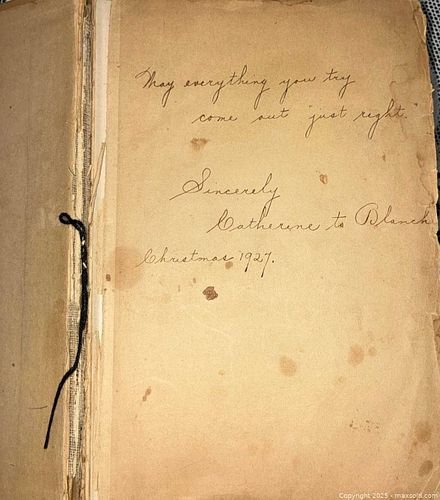 May everything you try
come out just right.
Sincerely
Catherine to Blanch
Christmas 1927.
Copyright 2025 - maxsold.com